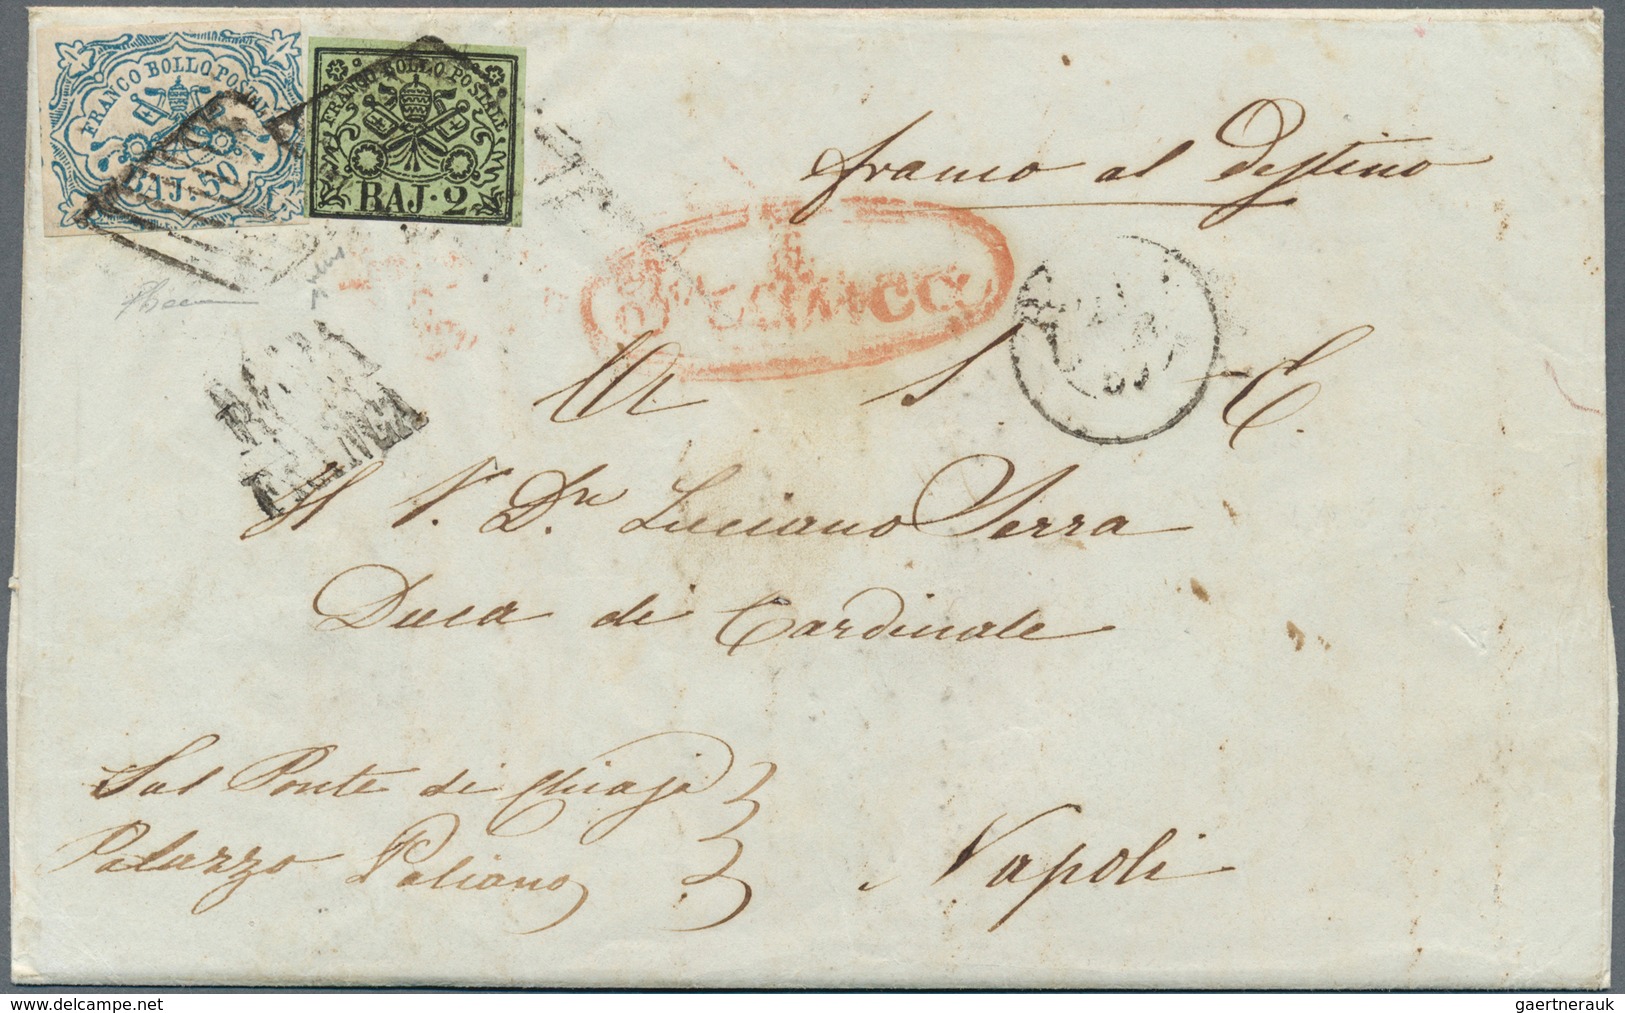 FRANCO BOLLO POSTALE
BAJ. 50
FRANCO BOLLO POSTALE
BAJ. 2
franco al Destino
FRANCA
A S. C.
Il S. Dn Luciano Serra
Duca di Cardinale
Sul Ponte di Chiaja
Palazzo Paliano
Napoli
© delcampe.net
gaertnerauk